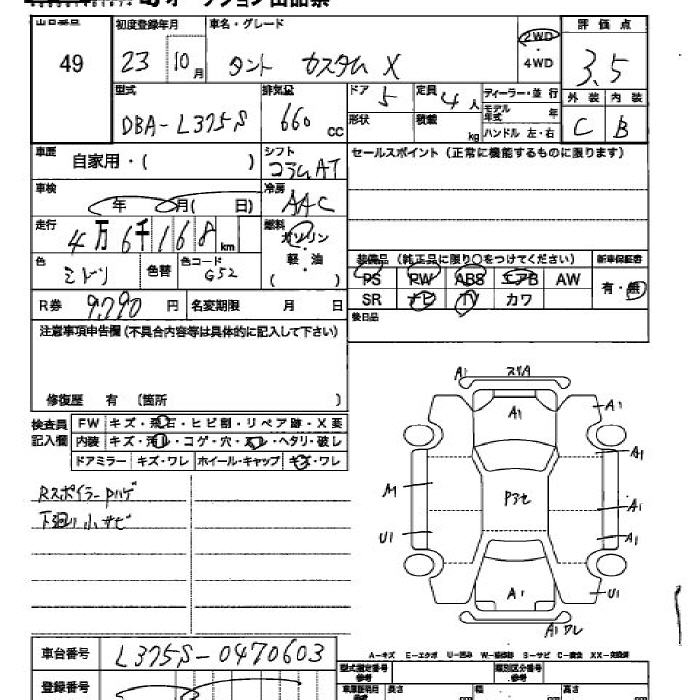 オークション出品票
出品番号 初度登録年月 車名・グレード 2WD・4WD 評価点
49 23 10月 タント カスタム X 3.5
型式 排気量 ドア 5 定員 4人 ディーラー・並行 外装 内装
DBA-L375S 660 CC 形状 積載 kg モデル年式 年 ハンドル 左・右 C B
車歴 自家用・( ) シフト コラムAT セールスポイント (正常に機能するものに限ります)
車検 年 月( 日) 冷房 AAC
走行 4万6千168km 燃料 ガソリン・軽・油 ( )
装備品 (純正品に限り○をつけてください) 新車保証書
色 ミドリ 色替 色コード G52
PS PW ABS エアB AW 有・無
R券 9,790円 名変期限 月 日
SR ナビ TV カワ
後日品
注意事項申告欄 (不具合内容等は具体的に記入して下さい)
修復歴 有 (箇所 )
検査員記入欄 FW キズ・飛石・ヒビ割・リペア跡・X要
内装 キズ・汚れ・コゲ・穴・スレ・ヘタリ・破レ
ドアミラー キズ・ワレ ホイール・キャップ キズ・ワレ
Rスポイラー Pハゲ
下廻り小サビ
A1 スリA
A1 A1
A1
M P3セ A1
U1 A1
A1 U1
A1 ワレ
車台番号 L375S-0470603
A-キズ E-エクボ U-凹み W-補修跡 S-サビ C-腐食 XX-交換済
登録番号
型式指定番号 参考 類別区分番号 参考
長さ cm 幅 cm 高さ cm